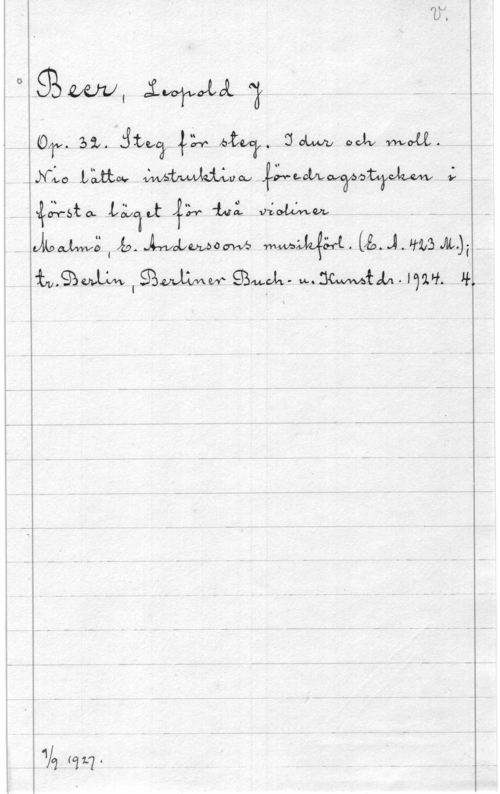 V.
Beer, Leopold J
Op. 32. Steg för steg. I dur och moll.
Nio lätta instruktiva föredragsstycken i
första läget för två violiner
Malmö, E. Anderssons musikförl. (E. A. 423 M.);
tr. Berlin, Berliner Buch- u. Kunstdr. 1924. 4.
9/9 1927.